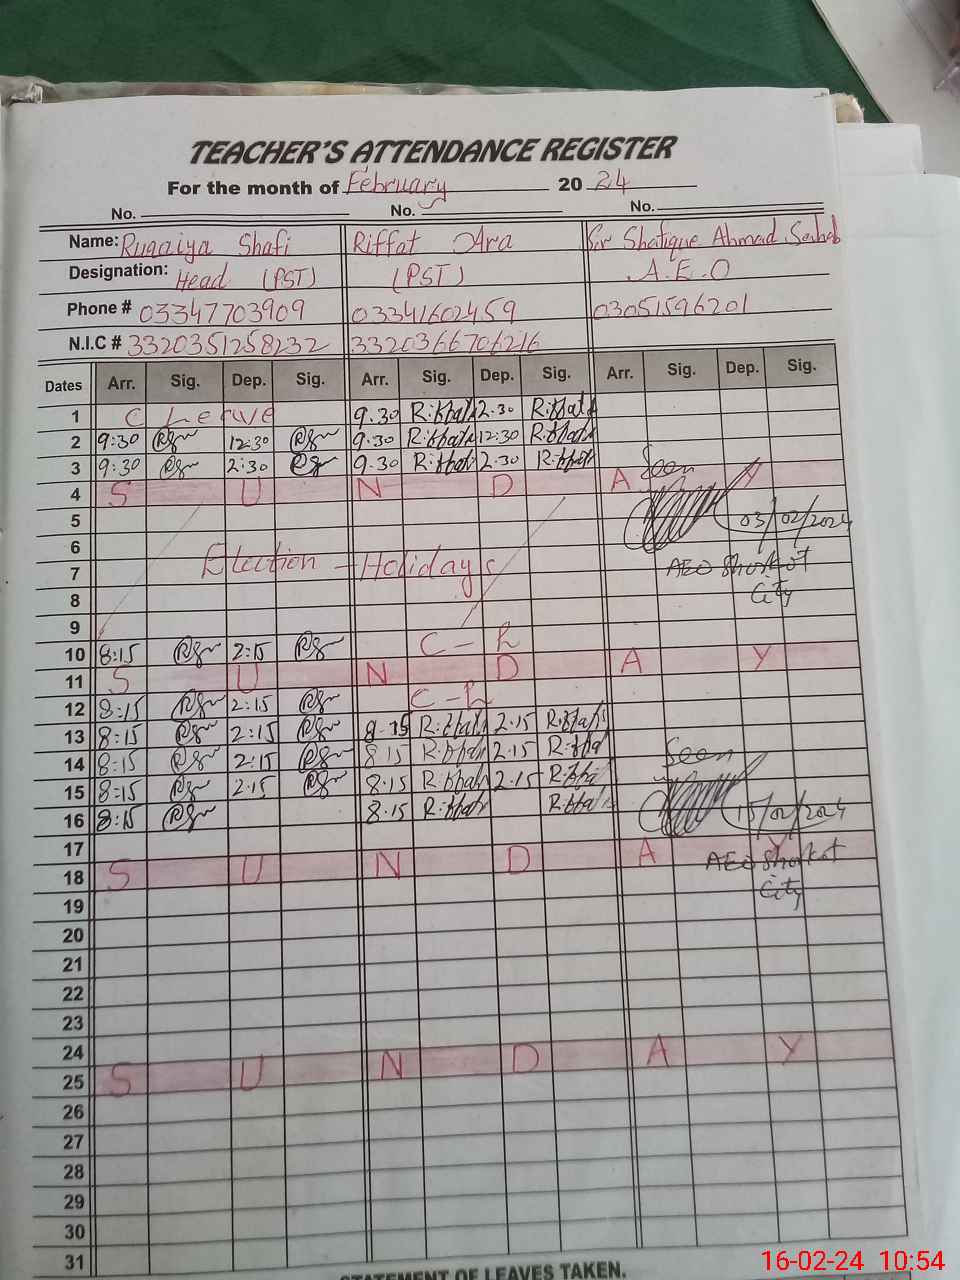 TEACHER'S ATTENDANCE REGISTER
For the month of February 20 24
No. No. No.
Name: Ruqaiya Shafi Riffat Ara Sir Shafique Ahmad Sahab
Designation: Head (PST) (PST) A.E.O
Phone # 03347703909 03341602459 03051596201
N.I.C # 3320351258232 3320366706216
Dates Arr. Sig. Dep. Sig. Arr. Sig. Dep. Sig. Arr. Sig. Dep. Sig.
1 C Leave 9.30 Riffat 2.30 Riffat
2 9:30 12:30 9.30 Riffat 12:30 Riffat
3 9:30 2:30 9.30 Riffat 2.30 Riffat Seen
4 S U N D A Y
5 03/02/2024
6
7 Election - Holidays AEO Shorkot
8 City
9
10 8:15 2:15 C - L
11 S U N D A Y
12 8:15 2:15 C - L
13 8:15 2:15 8.15 Riffat 2.15 Riffat
14 8:15 2:15 8.15 Riffat 2.15 Riffat Seen
15 8:15 2.15 8.15 Riffat 2.15 Riffat
16 8:15 8.15 Riffat Riffat 15/02/2024
17
18 S U N D A Y AEO Shorkot
19 City
20
21
22
23
24
25 S U N D A Y
26
27
28
29
30
31
STATEMENT OF LEAVES TAKEN.
16-02-24 10:54